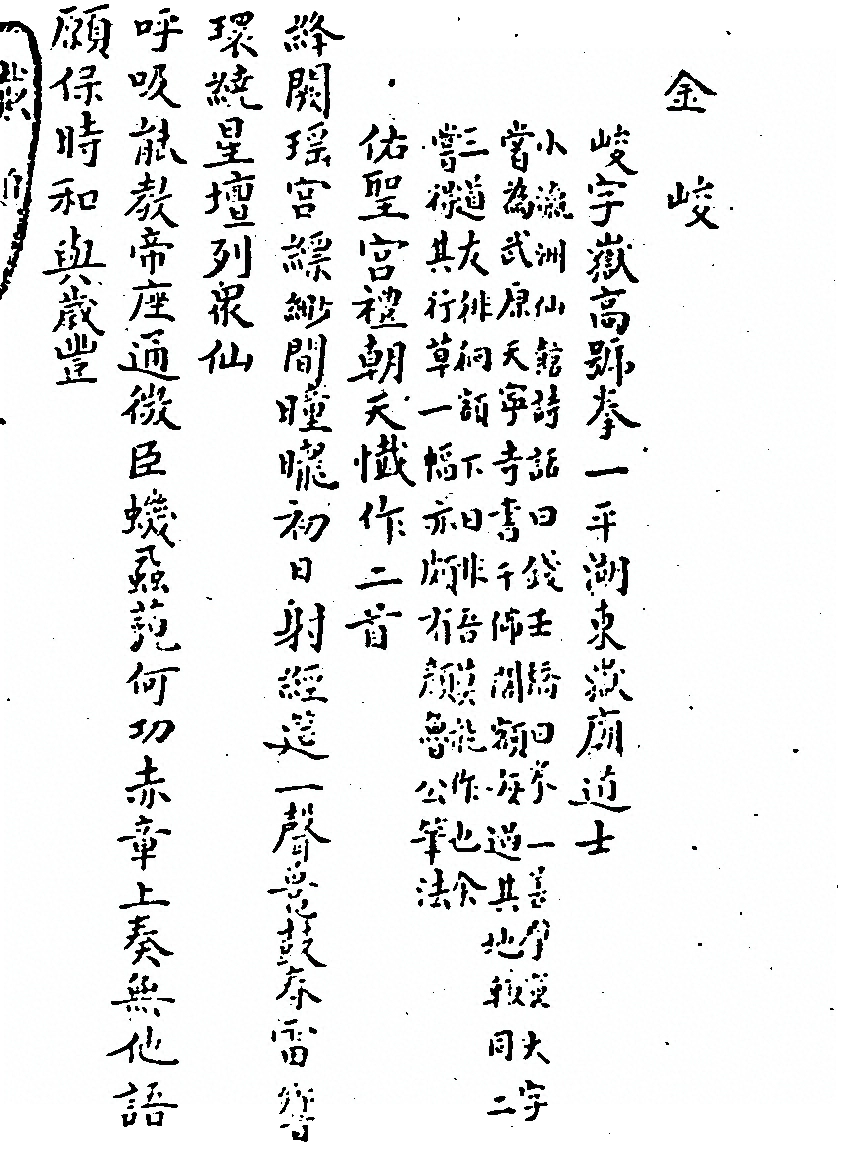 金峻
峻字嶽高號拳一平湖東嶽廟道士
小瀛洲仙館詩話曰錢壬橋曰拳一善擘窠大字
嘗為武原天寧寺書千佛閣額後過其地輒同二
三道友徘徊額下曰非吾莫能作也余
嘗得其行草一幅亦頗有顏魯公筆法
佑聖宮禮朝天懺作二首
絳闕瑤宮縹緲間曈曨初日射經筵一聲鼉鼓春雷響
環繞星壇列衆仙
呼吸能教帝座通微臣蟣蝨苑何功赤章上奏無他語
願保時和與歲豐